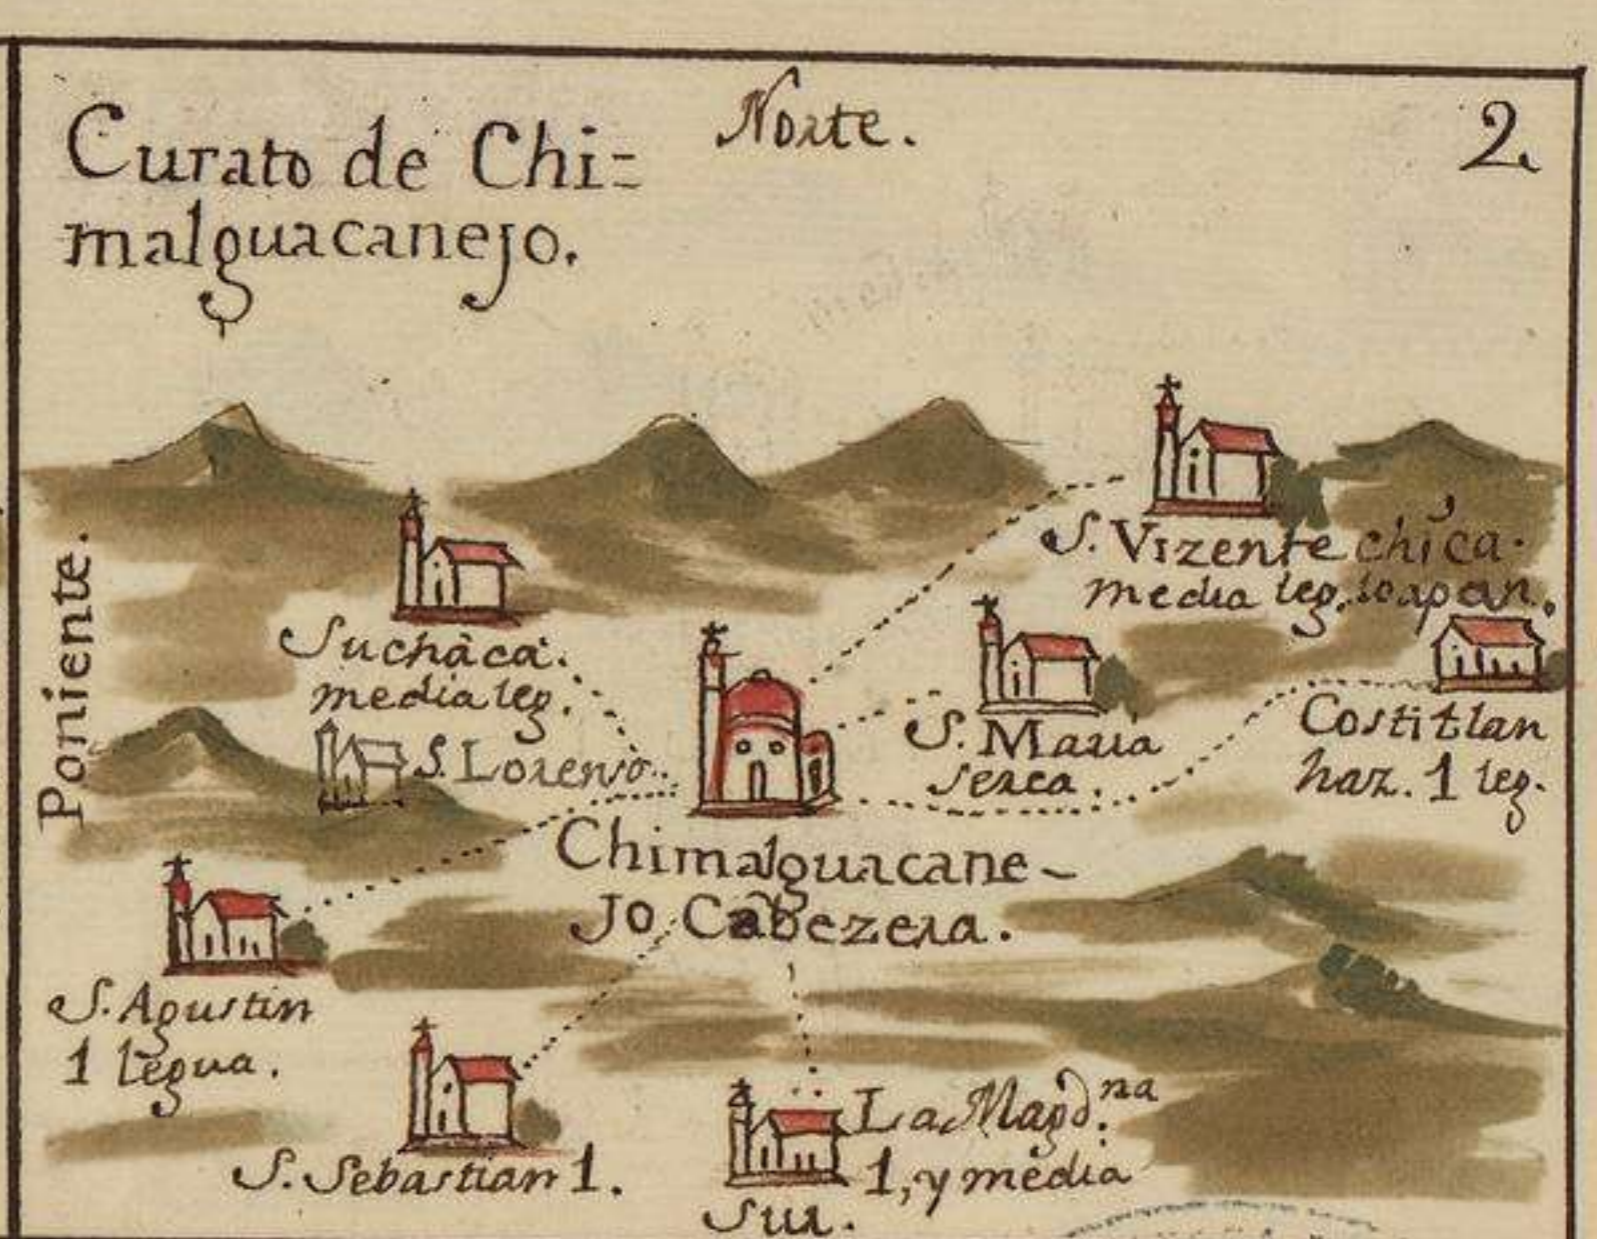 Curato de Chi=
malguacanejo.
Norte.
2.
Poniente.
S. Vizente chica.
media leg. loapan.
Suchàca.
media leg.
S. Lorenso.
S. Maria
serca.
Costitlan
haz. 1 leg.
Chimalguacane-
Jo Cabezera.
S. Agustin
1 legua.
S. Sebastian 1.
La Magd.na
1, y media
Sur.